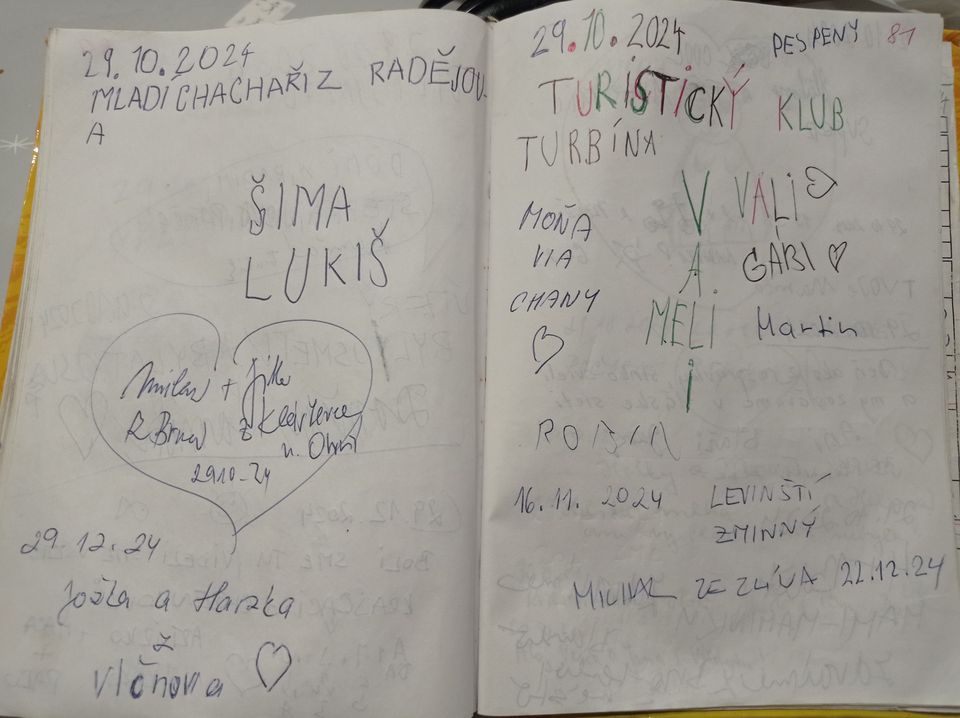 29.10.2024
MLADÍ CHACHAŘI Z RADĚJOV-
A
ŠIMA
LUKIŠ
Milan + Jitka
z Brna z Klášterce
n. Ohří
29.10-24
29.12.24
Jožka a Hanka
z
Vlčnova
29.10.2024
PESPENÝ 81
TURISTICKÝ KLUB
TURBÍNA
MOŇA
CHANY
V VALI
A. GÁBI
MELI Martin
I
ROBIN
16.11. 2024 LEVINŠTÍ
ZMINNÝ
MICHAL ZE ZLÍVA 22.12.24